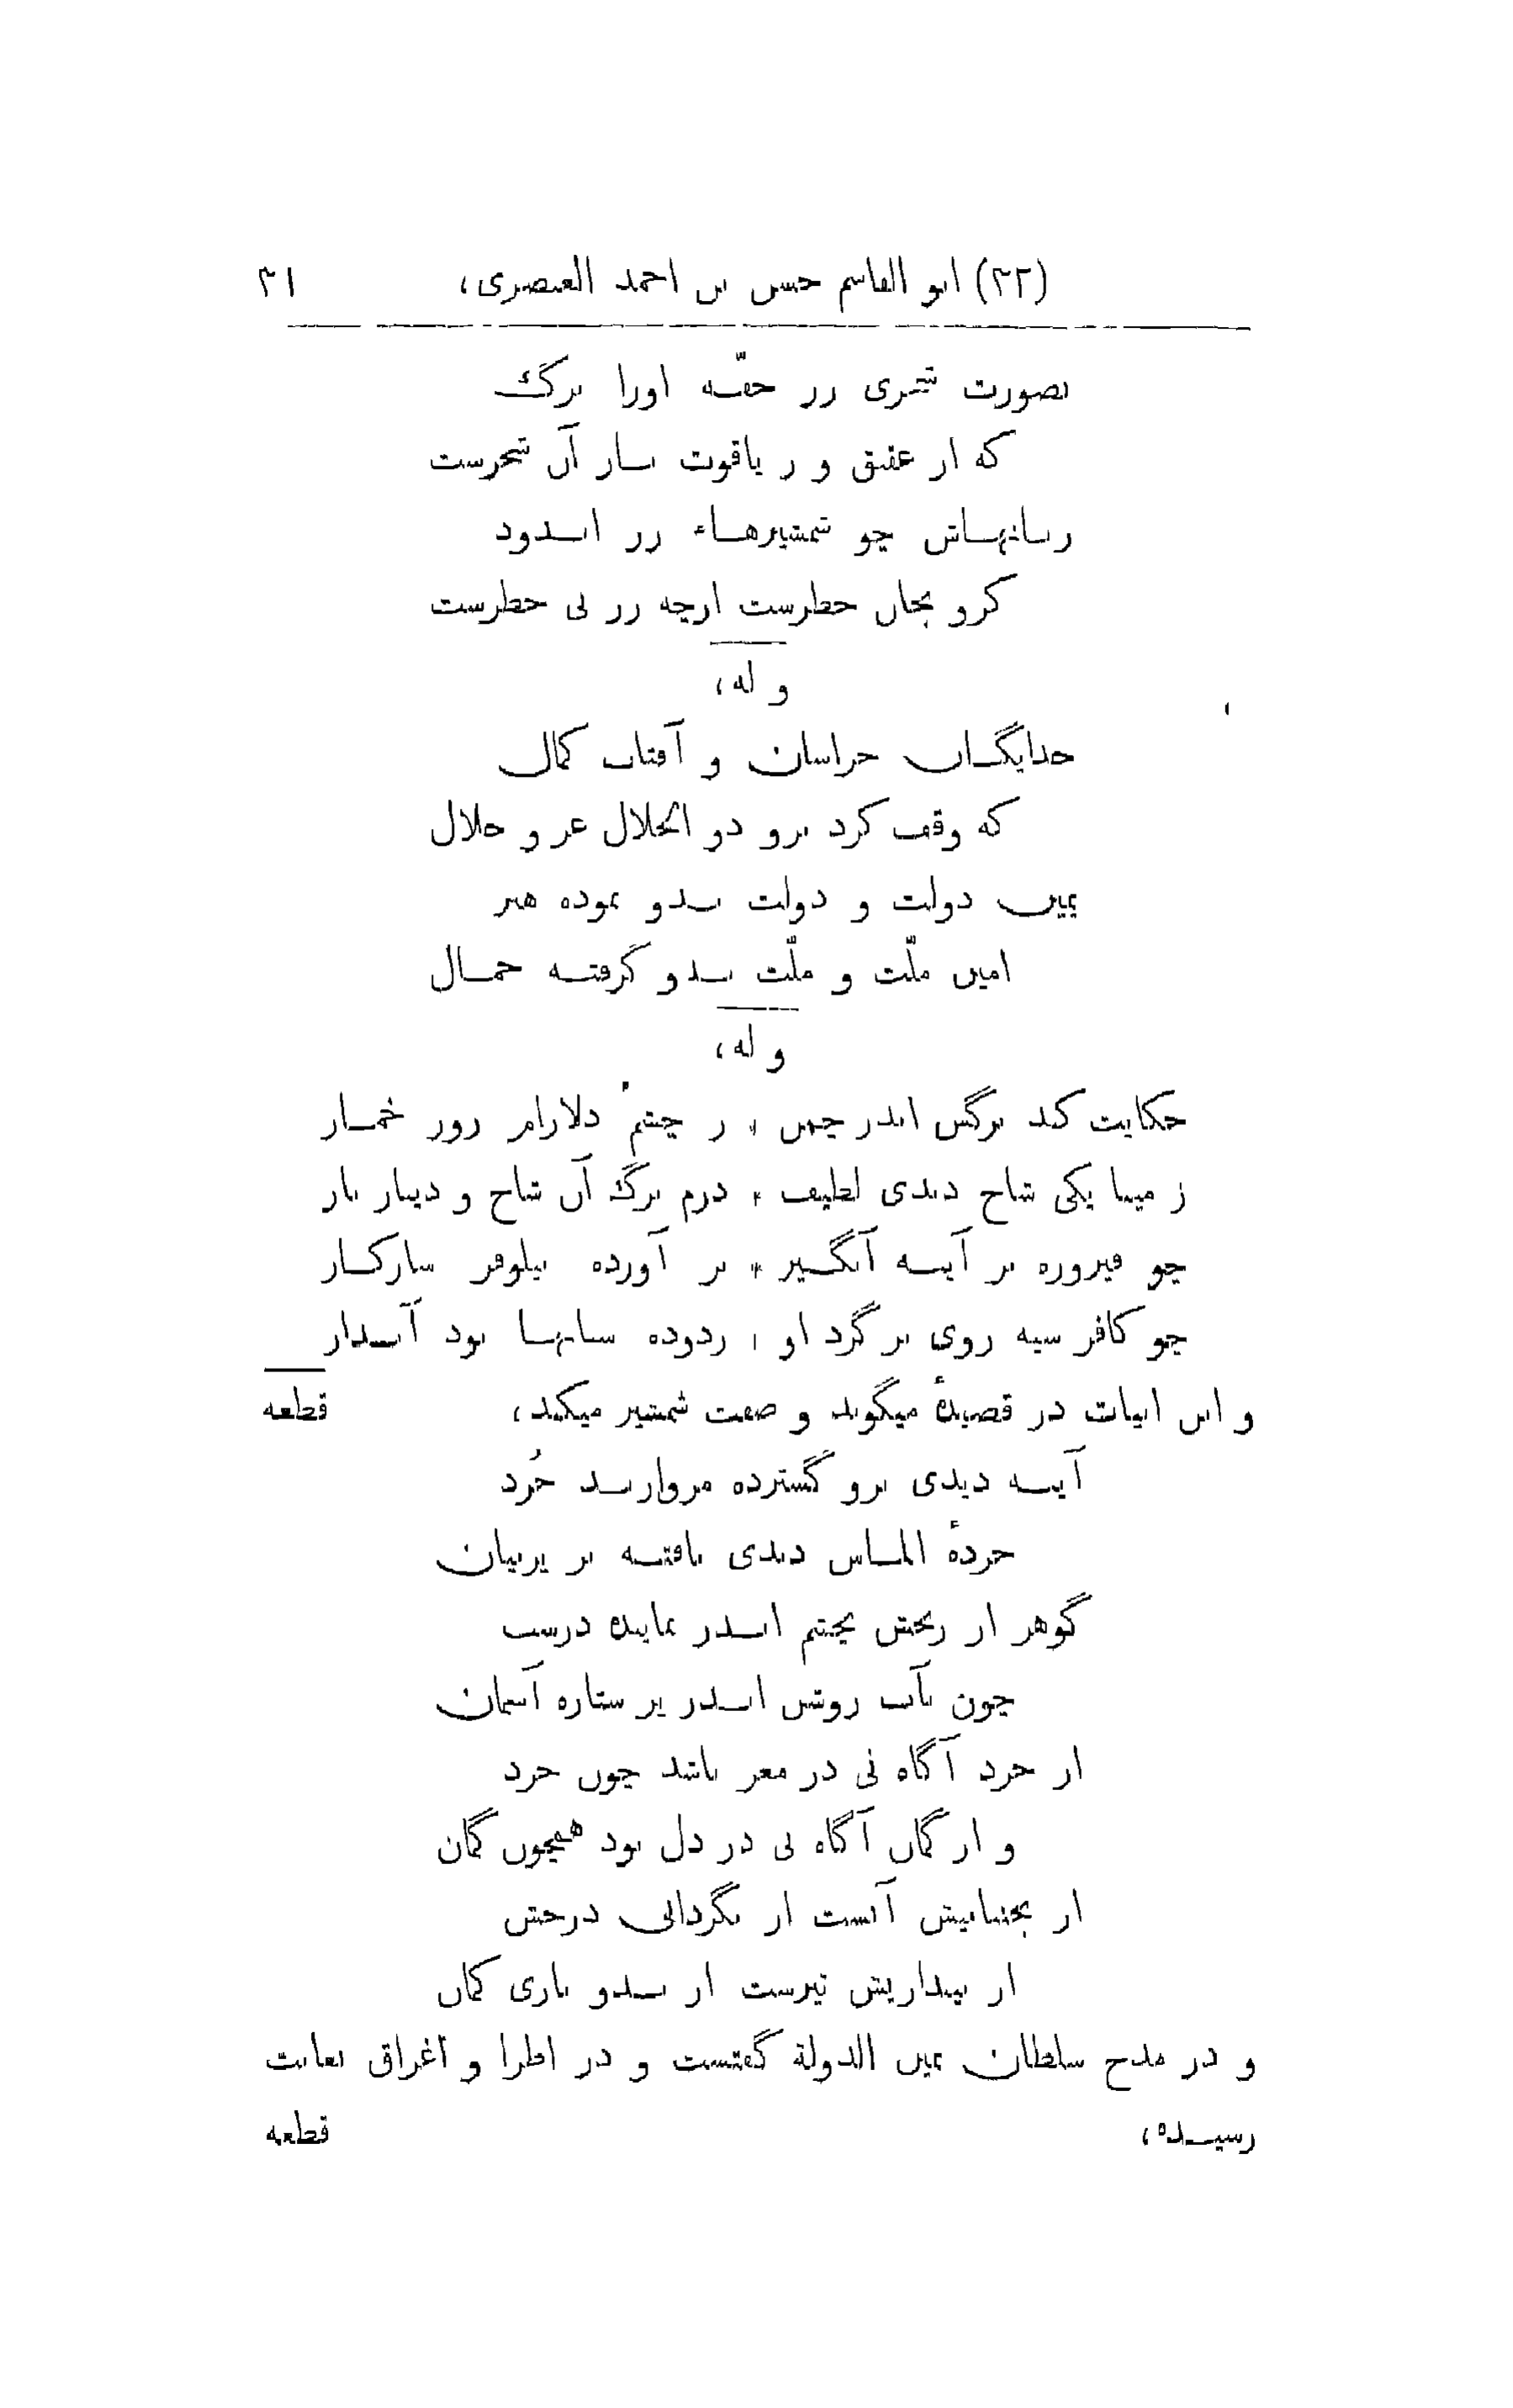 (۲۲) ابو القاسم حسن بن احمد العنصری، ۳۱
بصورت شجری زر خفّه اورا برگ
که از عقیق و ز یاقوت بار آن شجرست
زبانهاش چو شمشیرهاء زر اندود
کزو بجان خطرست ارچه زر بی خطرست
و له،
خدایگان خراسان و آفتاب کمال
که وقف کرد برو ذو الجلال عز و جلال
یمین دولت و دولت بدو نموده هنر
امین ملّت و ملّت بدو گرفته جمال
و له،
حکایت کند نرگس اندر چمن * ز چشم دلارام روز خمار
ز مینا یکی شاخ دیدی لطیف * درم برگ آن شاخ و دینار بار
چو فیروزه بر آینه آبگیر * بر آورده نیلوفر سازکار
چو کافر سیه روی بر گرد او * زدوده سنانها بود آبدار
و این ابیات در قصیدهٔ میگوید و صفت شمشیر میکند، قطعه
آینه دیدی برو گسترده مروارید خُرد
خردهٔ الماس دیدی بافته بر پرنیان
گوهر از رنگش بچشم اندر نماینده درست
چون بآب روشن اندر پر ستاره آسمان
از خرد آگاه نی در مغز باشد چون خرد
و از گمان آگاه نی در دل بود همچون گمان
ار بجنبانیش آبست ار بگردانی درخش
ار بیندازیش تیرست ار بدو یازی کمان
و در مدح سلطان یمین الدولة گفتست و در اطرا و اغراق بغایت
رسیده، قطعه